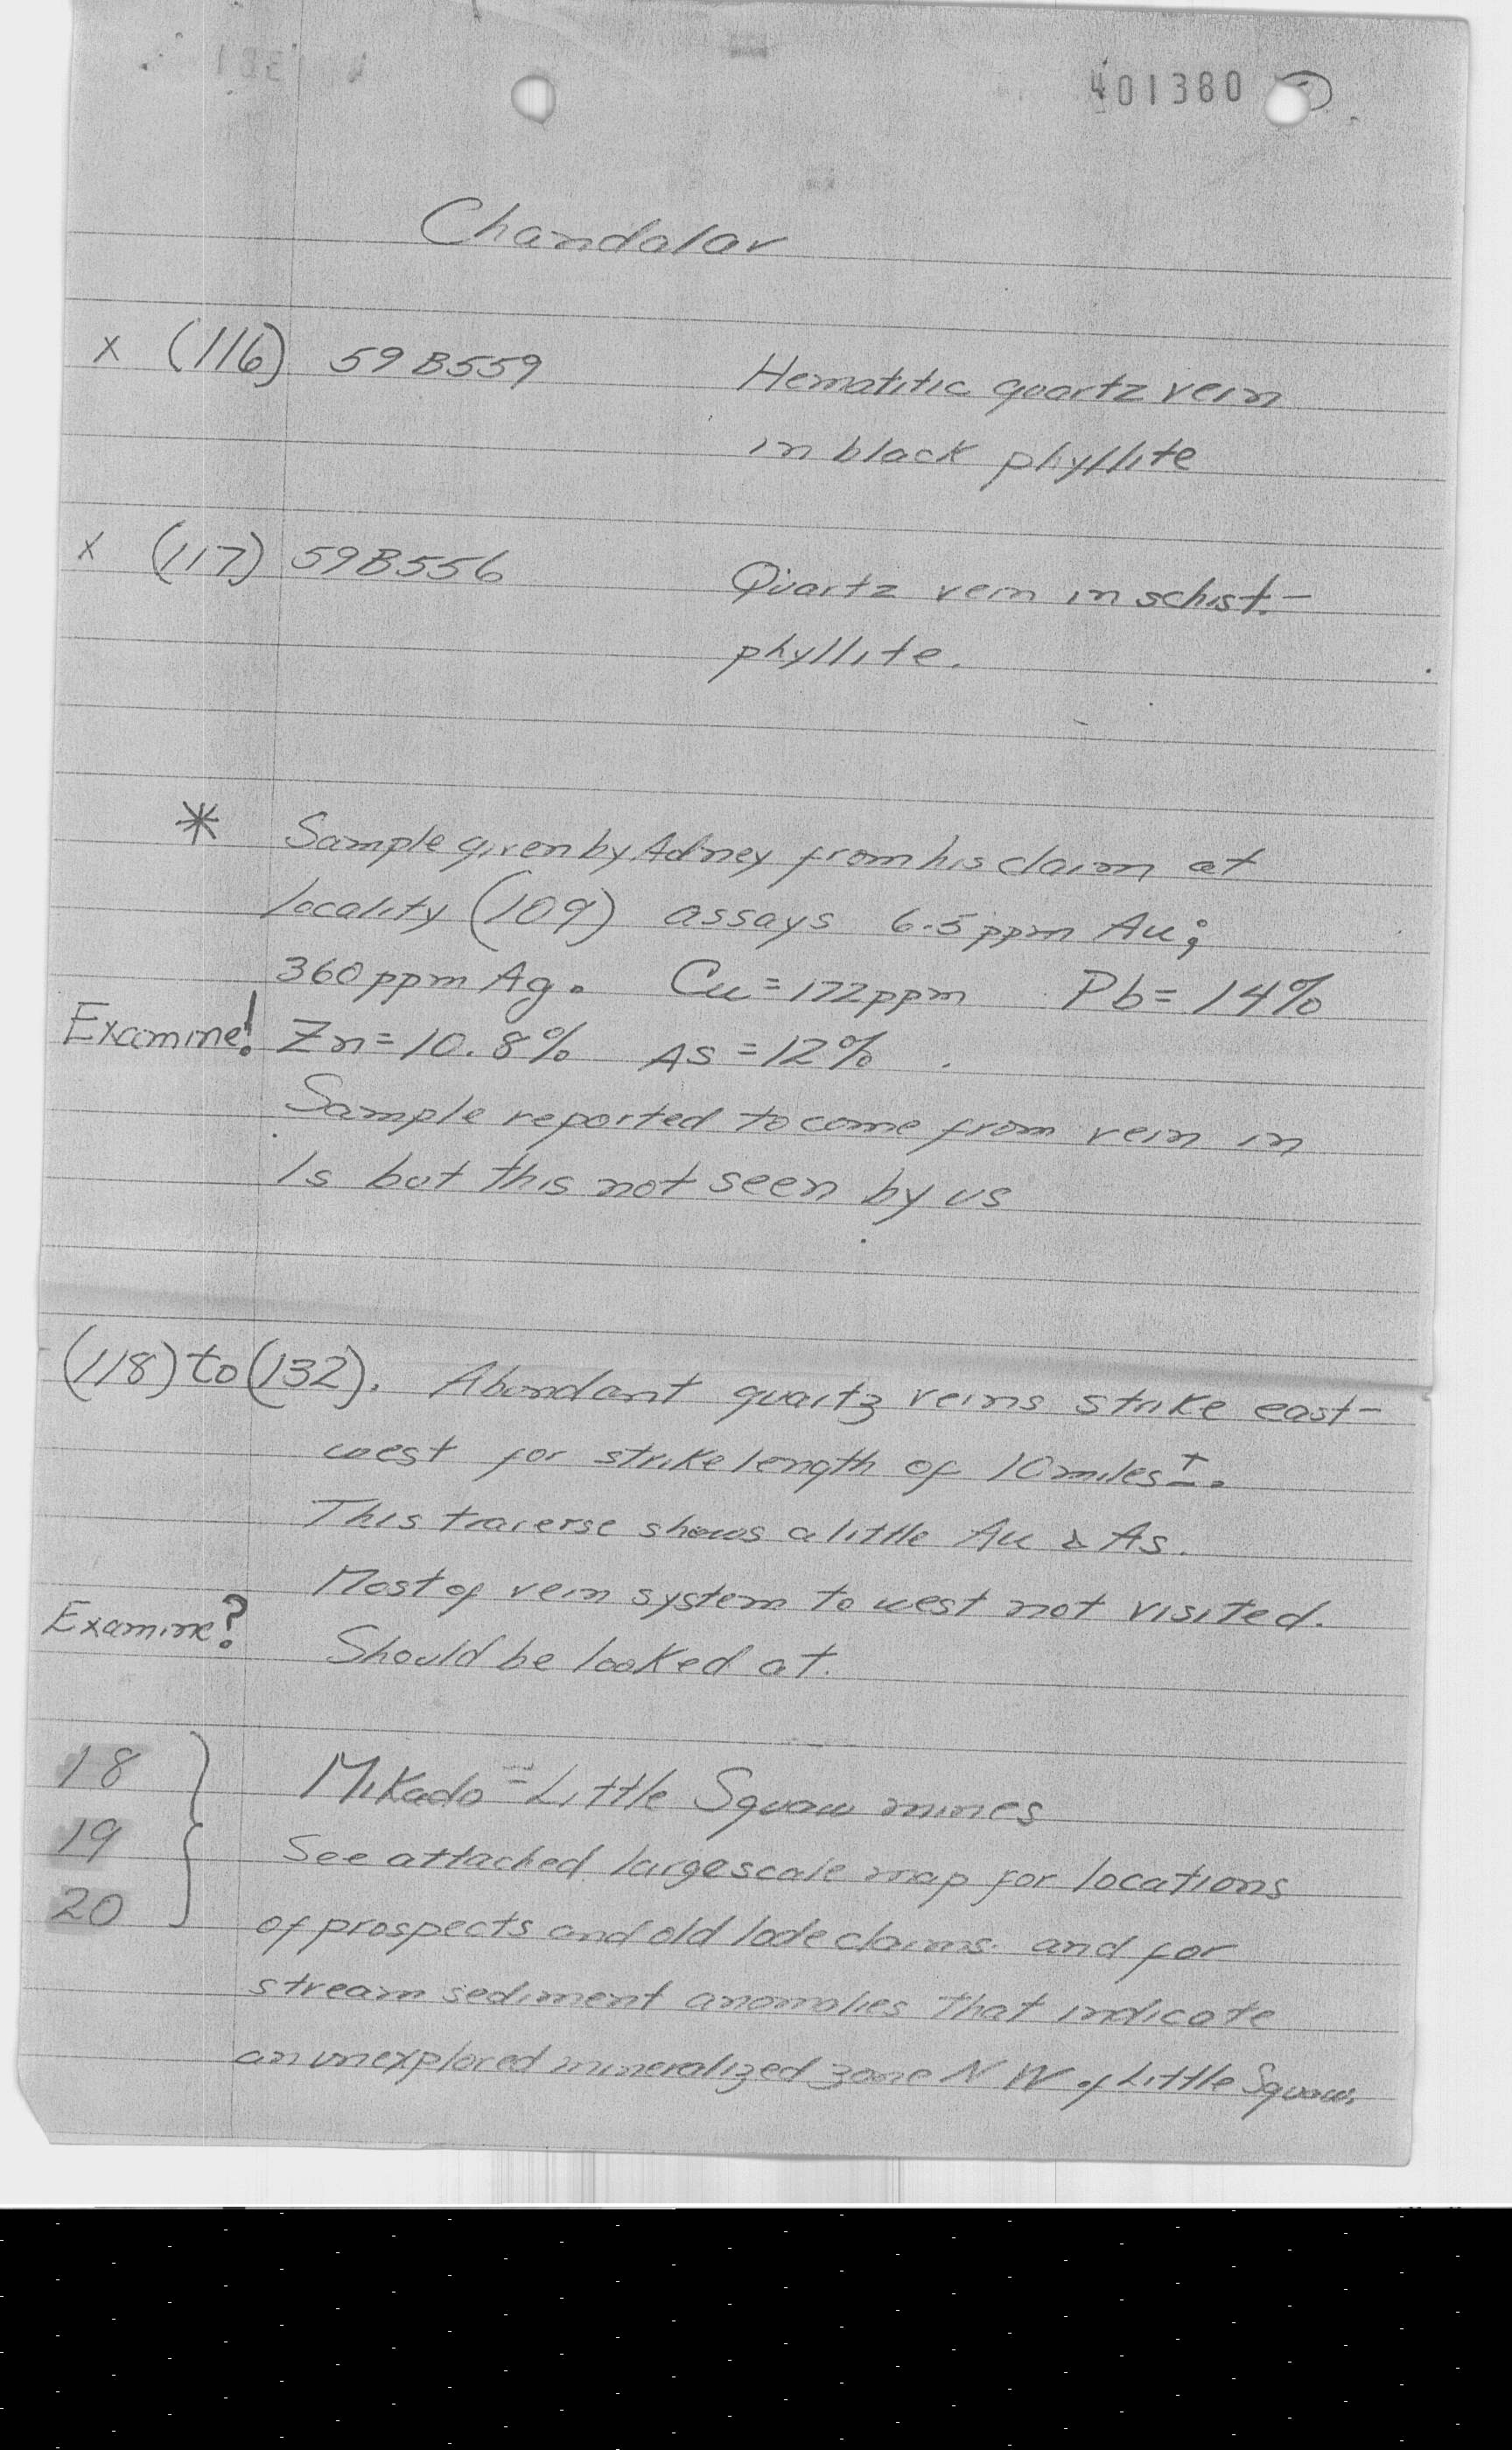 401380
Chandalar
x (116) 59B559 Hematitic quartz vein
in black phyllite
x (117) 59B556 Quartz vein in schist-
phyllite.
* Sample given by Adney from his claim at
locality (109) assays 6.5 ppm Au;
360 ppm Ag. Cu = 172 ppm Pb = 14%
Examine! Zn = 10.8% As = 12%.
Sample reported to come from vein in
ls but this not seen by us
(118) to (132). Abundant quartz veins strike east-
west for strike length of 10 miles ±.
This traverse shows a little Au & As.
Most of vein system to west not visited.
Examine? Should be looked at.
18 Mikado - Little Squaw mines
19 See attached large scale map for locations
20 of prospects and old lode claims and for
stream sediment anomalies that indicate
an unexplored mineralized zone N W of Little Squaw.